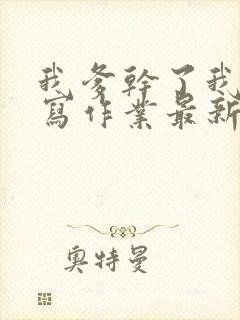 我爹幹了我
寫作業最新
奧特曼